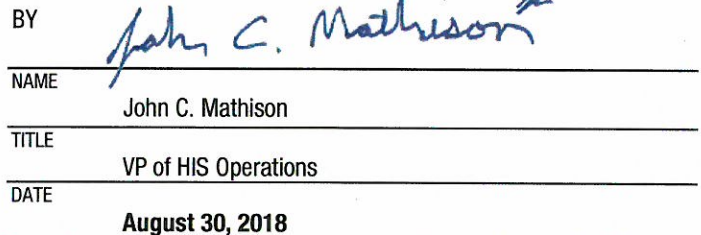 BY John C. Mathison
NAME
John C. Mathison
TITLE
VP of HIS Operations
DATE
August 30, 2018